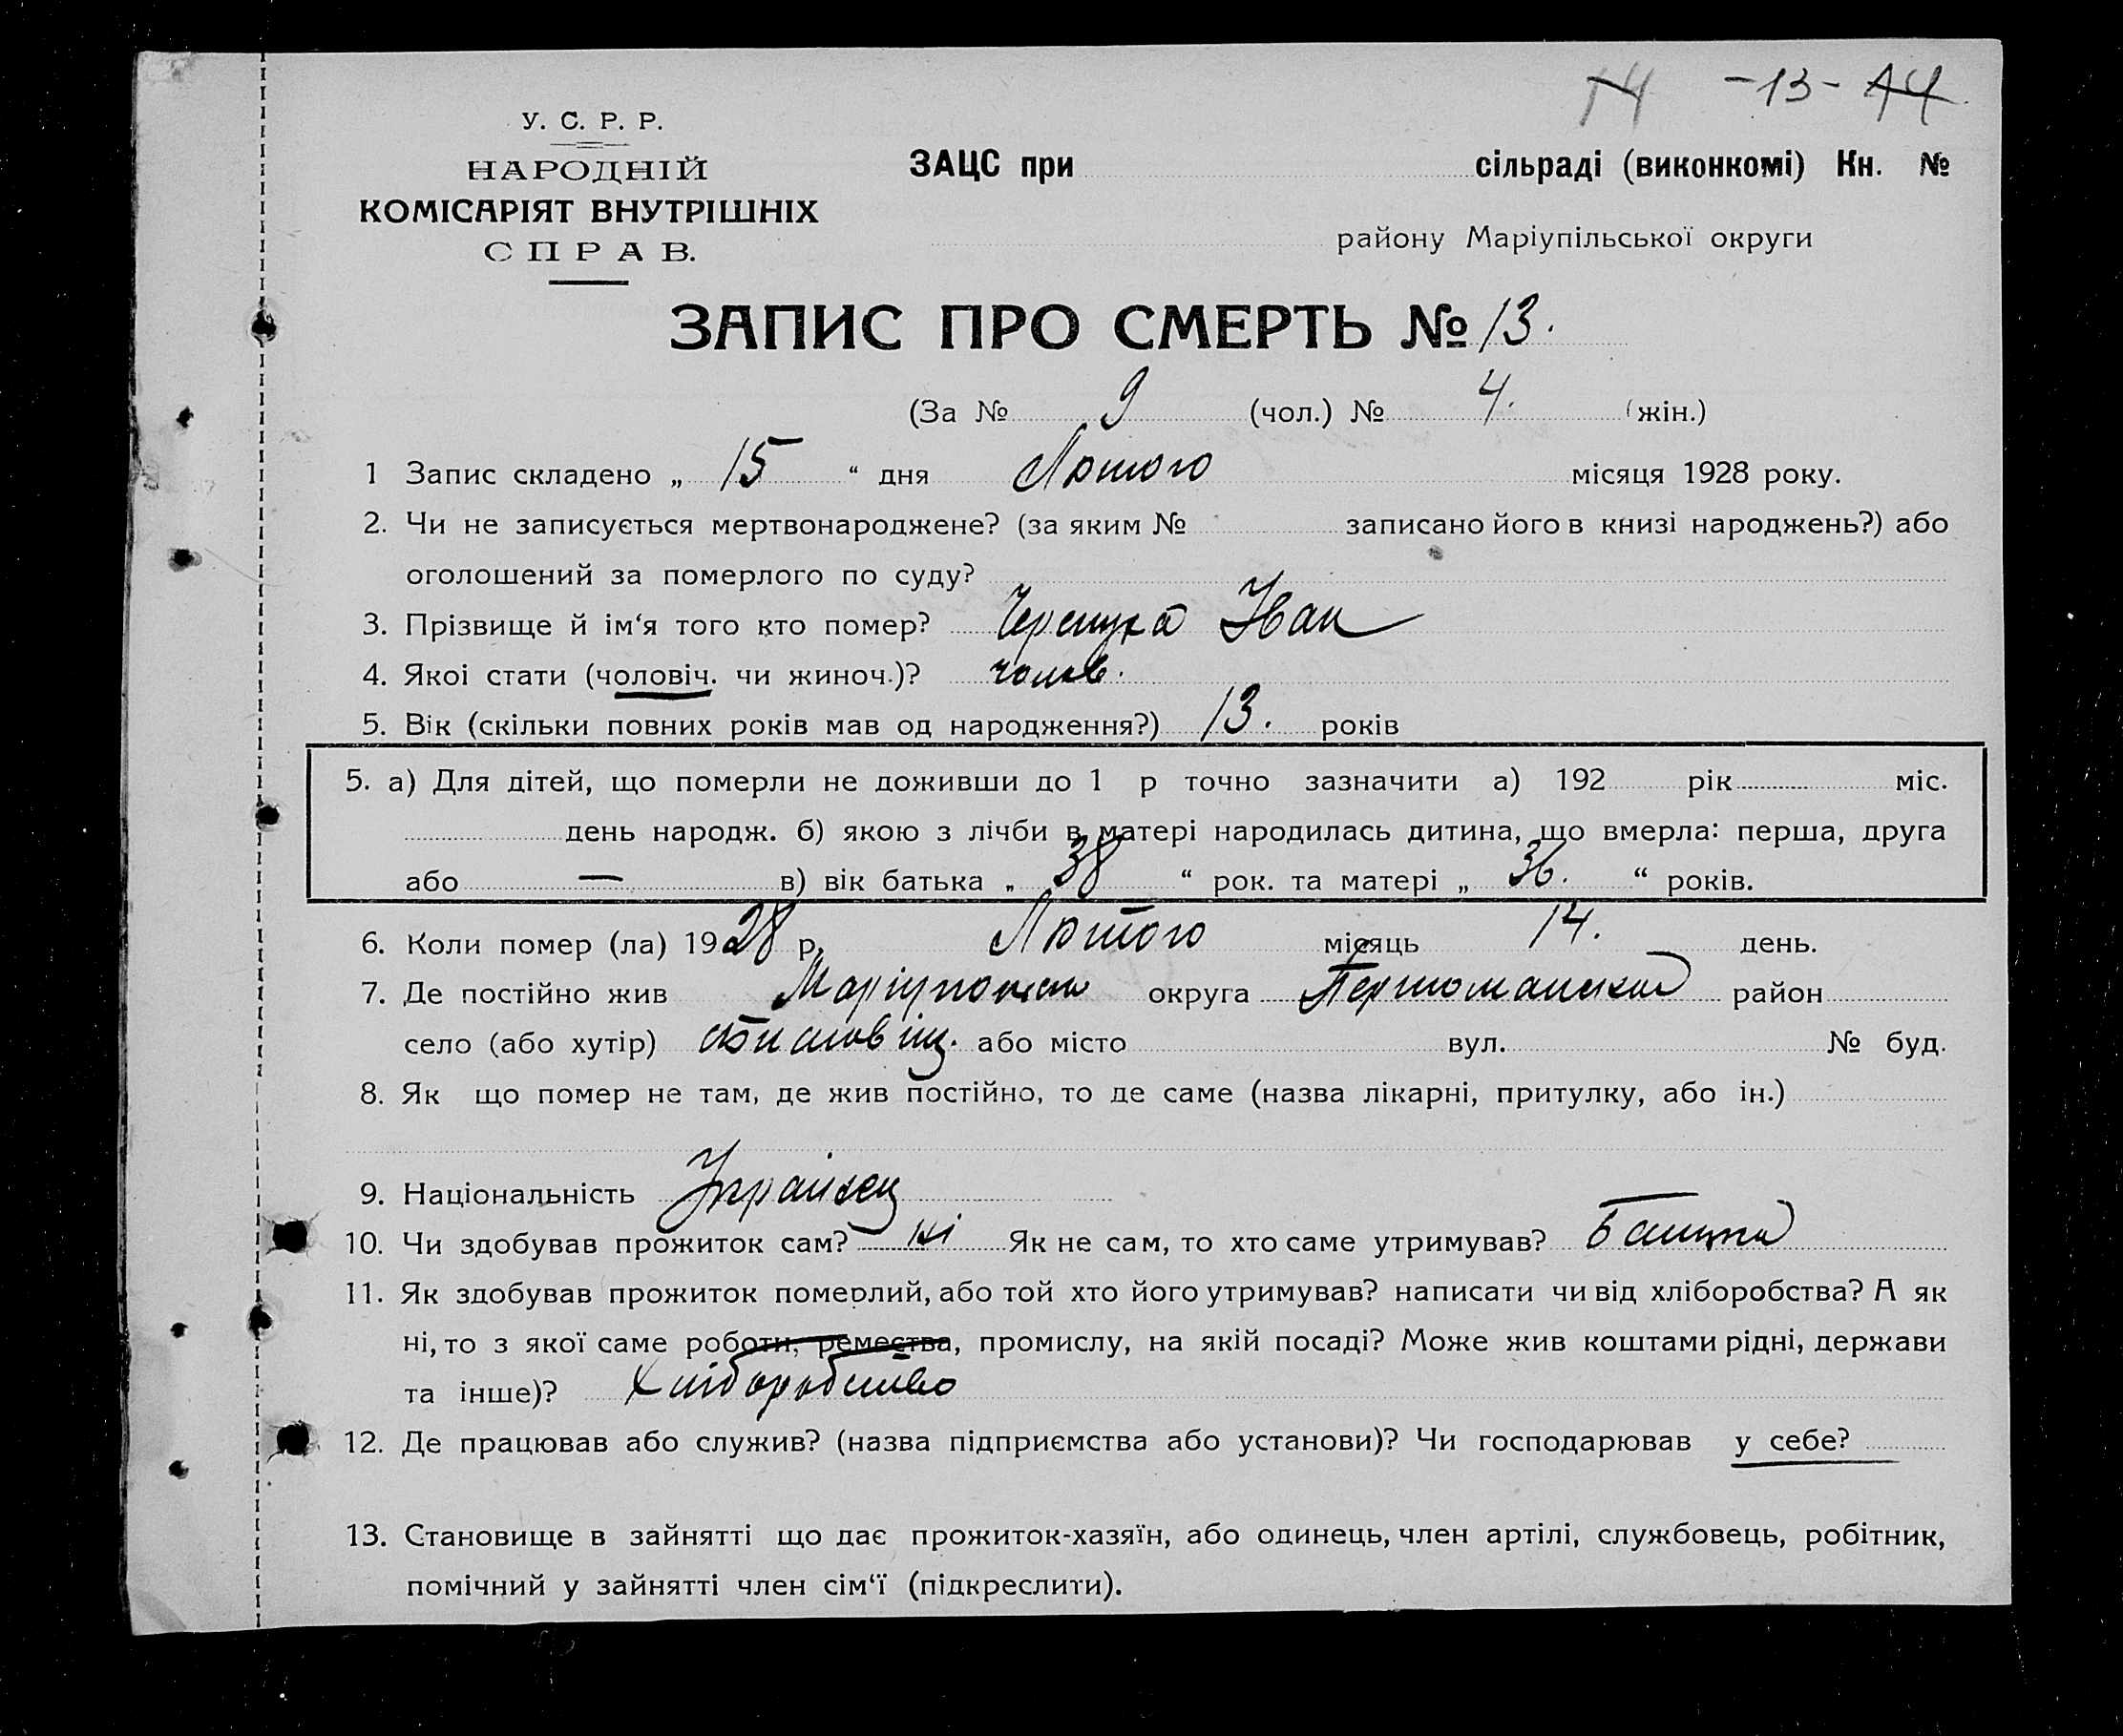 14 -13- 14
У. С. Р. Р.
НАРОДНІЙ
КОМІСАРІЯТ ВНУТРІШНІХ
СПРАВ.
ЗАЦС при сільраді (виконкомі) Кн. №
району Маріупільської округи
ЗАПИС ПРО СМЕРТЬ № 13.
(За № 9 (чол.) № 4. (жін.)
1 Запис складено „ 15 “ дня Лютого місяця 1928 року.
2. Чи не записується мертвонароджене? (за яким № записано його в книзі народжень?) або
оголошений за померлого по суду?
3. Прізвище й ім‘я того кто помер? Иван
4. Якоі стати (чоловіч. чи жиноч.)? чолов.
5. Вік (скільки повних років мав од народження?) 13. років
5. а) Для дітей, що померли не доживши до 1 р точно зазначити а) 192 рік міс.
день народж. б) якою з лічби в матері народилась дитина, що вмерла: перша, друга
або — в) вік батька „ 38 “ рок. та матері „ 36. “ років.
6. Коли помер (ла) 1928 р. Лютого місяць 14. день.
7. Де постійно жив округа район
село (або хутір) або місто вул. № буд.
8. Як що помер не там, де жив постійно, то де саме (назва лікарні, притулку, або ін.)
9. Національність Українец
10. Чи здобував прожиток сам? ні Як не сам, то хто саме утримував? Батько
11. Як здобував прожиток померлий, або той хто його утримував? написати чи від хліборобства? А як
ні, то з якої саме роботи, ремества, промислу, на якій посаді? Може жив коштами рідні, держави
та інше)? Хліборобство
12. Де працював або служив? (назва підприємства або установи)? Чи господарював у себе?
13. Становище в зайнятті що дає прожиток-хазяїн, або одинець, член артілі, службовець, робітник,
помічний у зайнятті член сім‘ї (підкреслити).